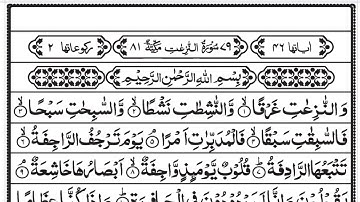 اٰیاتها ۴۶ ۷۹ سُوْرَةُ النّٰزِعٰتِ مَكِّیَّةٌ ۸۱ رکوعاتها ۲
بِسْمِ اللّٰهِ الرَّحْمٰنِ الرَّحِیْمِ
وَالنّٰزِعٰتِ غَرْقًا ۙ۱ وَّالنّٰشِطٰتِ نَشْطًا ۙ۲ وَّالسّٰبِحٰتِ سَبْحًا ۙ۳
فَالسّٰبِقٰتِ سَبْقًا ۙ۴ فَالْمُدَبِّرٰتِ اَمْرًا ۘ۵ یَوْمَ تَرْجُفُ الرَّاجِفَةُ ۙ۶
تَتْبَعُهَا الرَّادِفَةُ ؕ۷ قُلُوْبٌ یَّوْمَىِٕذٍ وَّاجِفَةٌ ۙ۸ اَبْصَارُهَا خَاشِعَةٌ ۘ۹